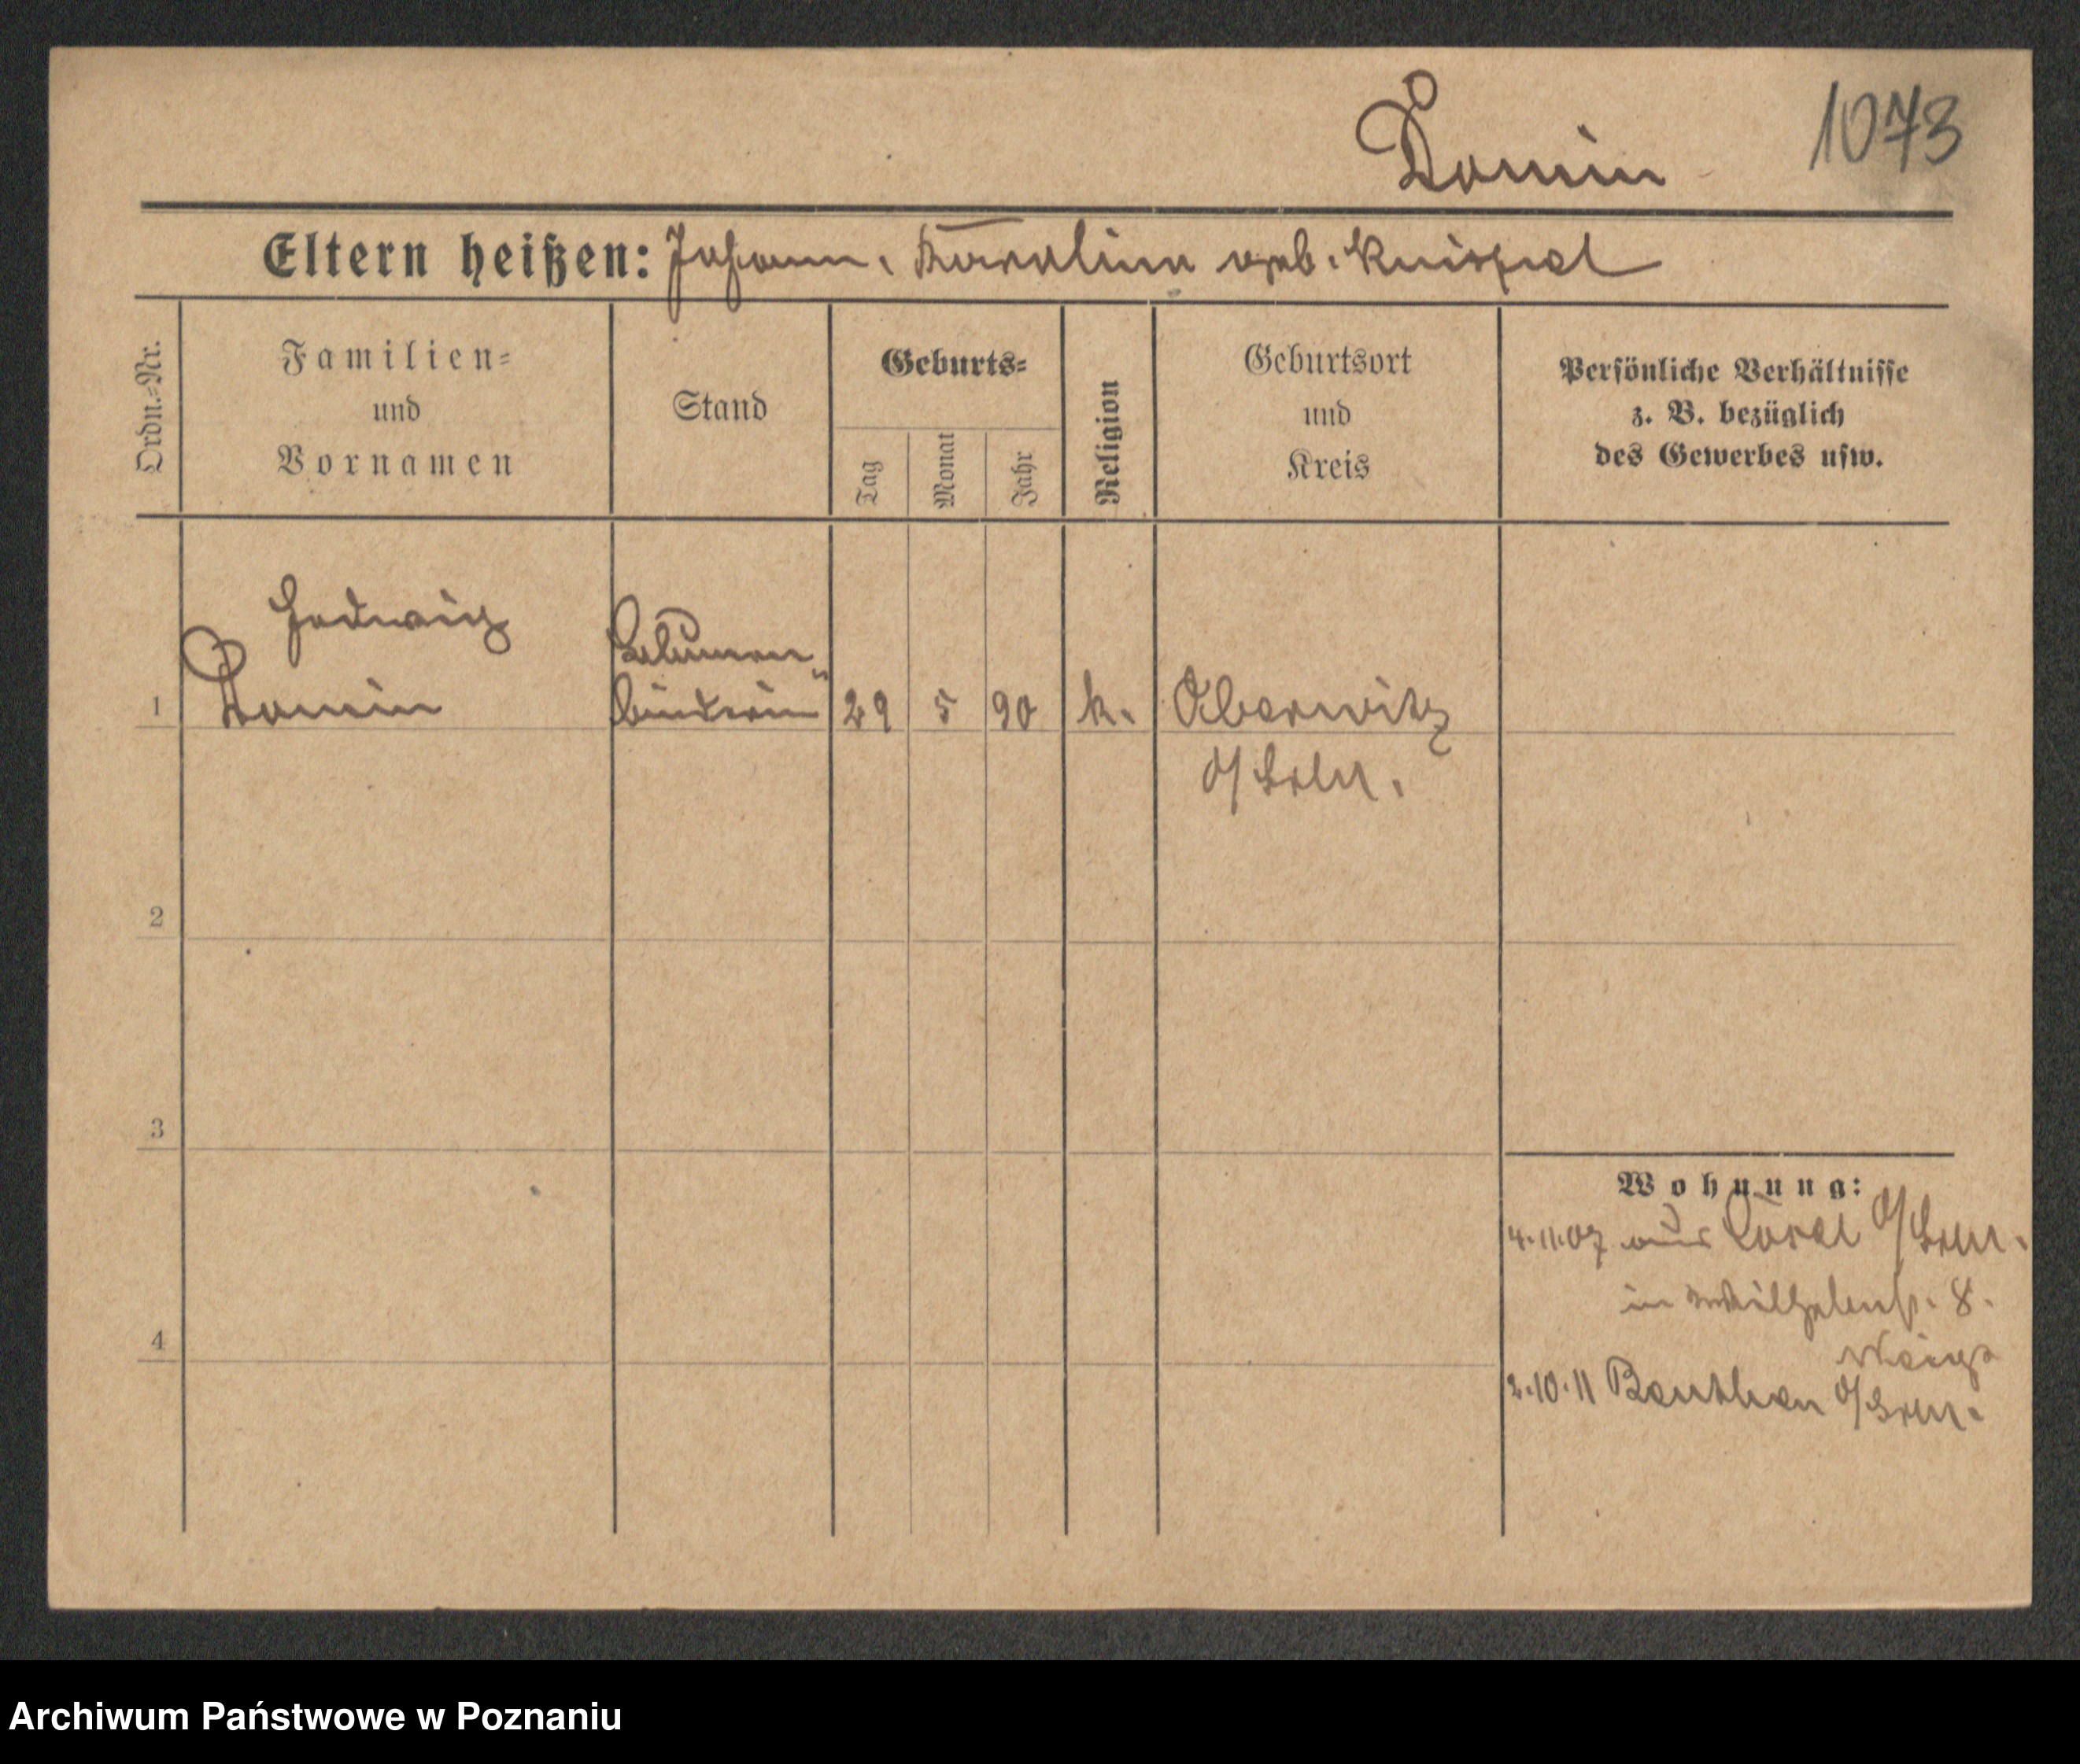 Domin
1073
Eltern heißen: Johann, Karoline geb. Knispel
Ordn.-Nr.
Familien-
und
Vornamen
Stand
Geburts-
Tag
Monat
Jahr
Religion
Geburtsort
und
Kreis
Persönliche Verhältnisse
z. B. bezüglich
des Gewerbes usw.
Hedwig
Domin
Blumen-
binderin
1
29
5
90
k.
Oberwitz
O/Schl.
2
3
4
Wohnung:
4.11.07 aus Cosel O/Schl.
in Wilhelmstr. 8.
2.10.11 Beuthen O/Schl.
Archiwum Państwowe w Poznaniu